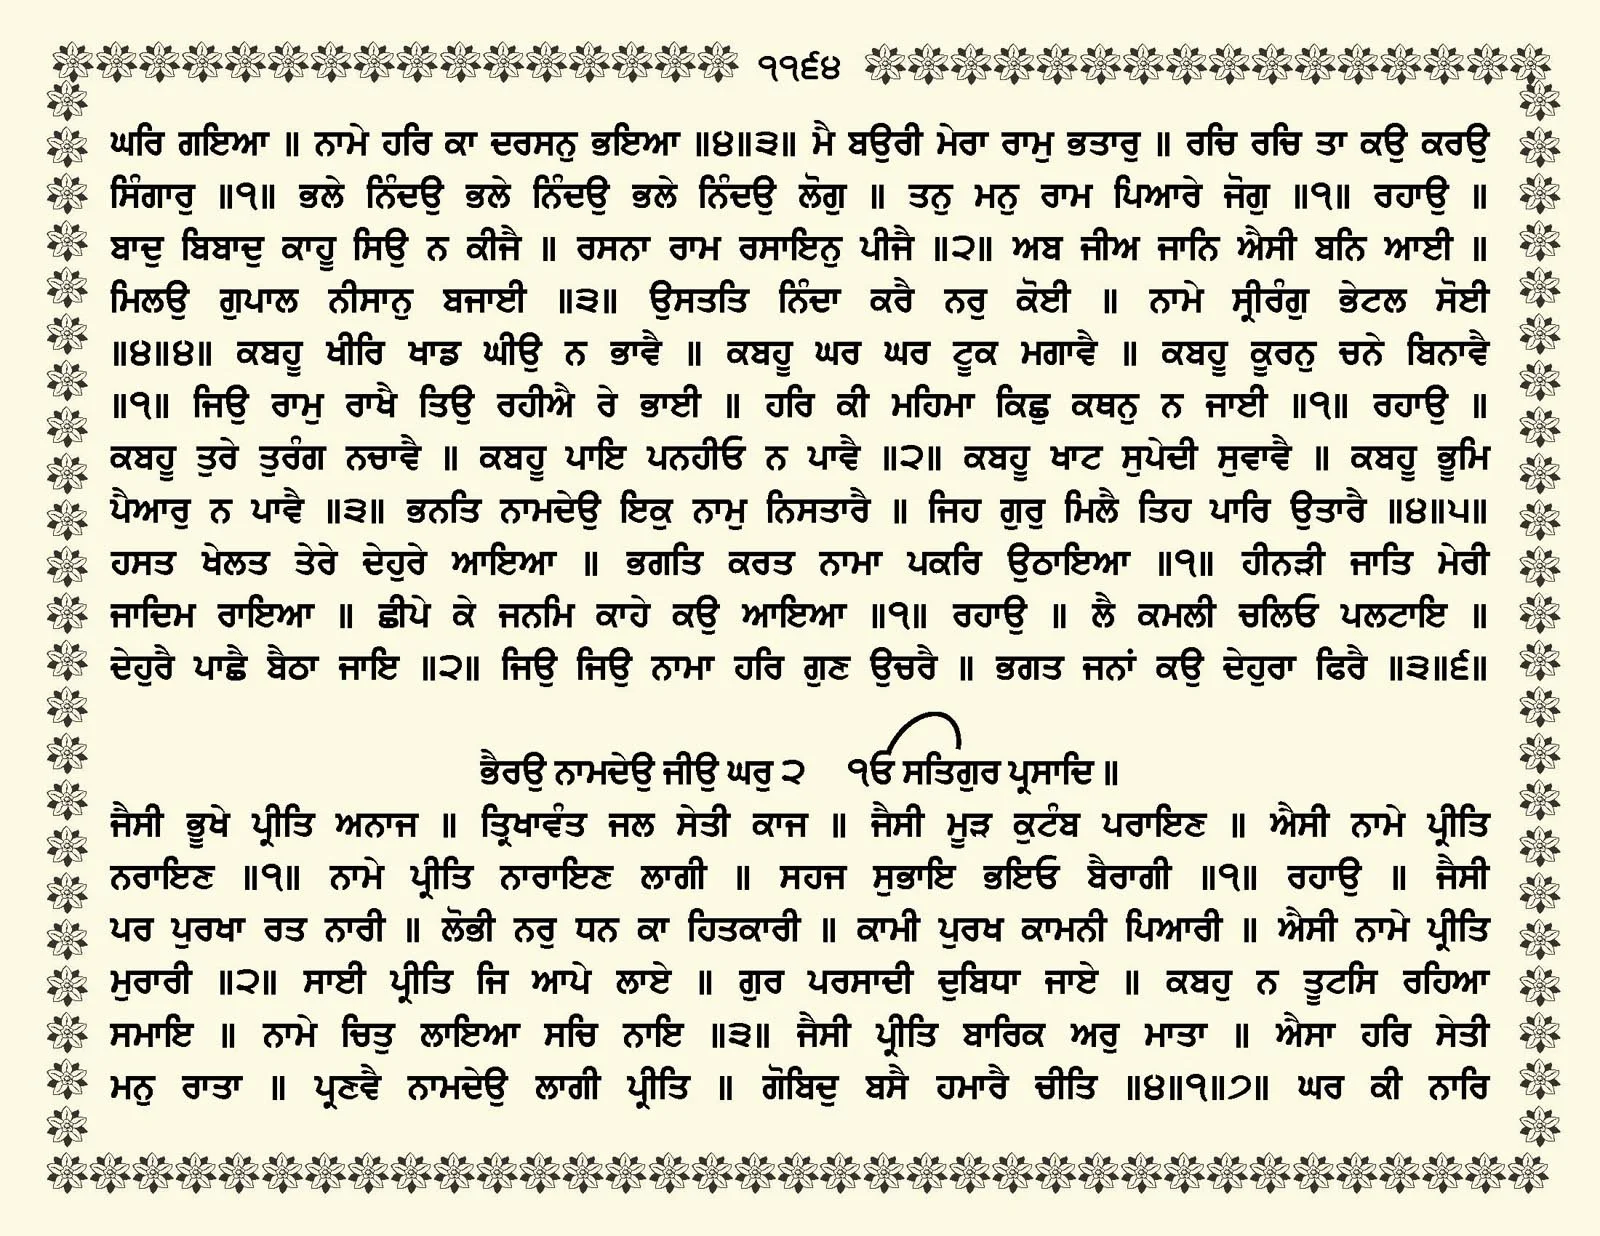 ੧੧੬੪
ਘਰਿ ਗਇਆ ॥ ਨਾਮੇ ਹਰਿ ਕਾ ਦਰਸਨੁ ਭਇਆ ॥੪॥੩॥ ਮੈ ਬਉਰੀ ਮੇਰਾ ਰਾਮੁ ਭਤਾਰੁ ॥ ਰਚਿ ਰਚਿ ਤਾ ਕਉ ਕਰਉ
ਸਿੰਗਾਰੁ ॥੧॥ ਭਲੇ ਨਿੰਦਉ ਭਲੇ ਨਿੰਦਉ ਭਲੇ ਨਿੰਦਉ ਲੋਗੁ ॥ ਤਨੁ ਮਨੁ ਰਾਮ ਪਿਆਰੇ ਜੋਗੁ ॥੧॥ ਰਹਾਉ ॥
ਬਾਦੁ ਬਿਬਾਦੁ ਕਾਹੂ ਸਿਉ ਨ ਕੀਜੈ ॥ ਰਸਨਾ ਰਾਮ ਰਸਾਇਨੁ ਪੀਜੈ ॥੨॥ ਅਬ ਜੀਅ ਜਾਨਿ ਐਸੀ ਬਨਿ ਆਈ ॥
ਮਿਲਉ ਗੁਪਾਲ ਨੀਸਾਨੁ ਬਜਾਈ ॥੩॥ ਉਸਤਤਿ ਨਿੰਦਾ ਕਰੈ ਨਰੁ ਕੋਈ ॥ ਨਾਮੇ ਸ੍ਰੀਰੰਗੁ ਭੇਟਲ ਸੋਈ
॥੪॥੪॥ ਕਬਹੂ ਖੀਰਿ ਖਾਡ ਘੀਉ ਨ ਭਾਵੈ ॥ ਕਬਹੂ ਘਰ ਘਰ ਟੂਕ ਮਗਾਵੈ ॥ ਕਬਹੂ ਕੂਰਨੁ ਚਨੇ ਬਿਨਾਵੈ
॥੧॥ ਜਿਉ ਰਾਮੁ ਰਾਖੈ ਤਿਉ ਰਹੀਐ ਰੇ ਭਾਈ ॥ ਹਰਿ ਕੀ ਮਹਿਮਾ ਕਿਛੁ ਕਥਨੁ ਨ ਜਾਈ ॥੧॥ ਰਹਾਉ ॥
ਕਬਹੂ ਤੁਰੇ ਤੁਰੰਗ ਨਚਾਵੈ ॥ ਕਬਹੂ ਪਾਇ ਪਨਹੀਓ ਨ ਪਾਵੈ ॥੨॥ ਕਬਹੂ ਖਾਟ ਸੁਪੇਦੀ ਸੁਵਾਵੈ ॥ ਕਬਹੂ ਭੂਮਿ
ਪੈਆਰੁ ਨ ਪਾਵੈ ॥੩॥ ਭਨਤਿ ਨਾਮਦੇਉ ਇਕੁ ਨਾਮੁ ਨਿਸਤਾਰੈ ॥ ਜਿਹ ਗੁਰੁ ਮਿਲੈ ਤਿਹ ਪਾਰਿ ਉਤਾਰੈ ॥੪॥੫॥
ਹਸਤ ਖੇਲਤ ਤੇਰੇ ਦੇਹੁਰੇ ਆਇਆ ॥ ਭਗਤਿ ਕਰਤ ਨਾਮਾ ਪਕਰਿ ਉਠਾਇਆ ॥੧॥ ਹੀਨੜੀ ਜਾਤਿ ਮੇਰੀ
ਜਾਦਿਮ ਰਾਇਆ ॥ ਛੀਪੇ ਕੇ ਜਨਮਿ ਕਾਹੇ ਕਉ ਆਇਆ ॥੧॥ ਰਹਾਉ ॥ ਲੈ ਕਮਲੀ ਚਲਿਓ ਪਲਟਾਇ ॥
ਦੇਹੁਰੈ ਪਾਛੈ ਬੈਠਾ ਜਾਇ ॥੨॥ ਜਿਉ ਜਿਉ ਨਾਮਾ ਹਰਿ ਗੁਣ ਉਚਰੈ ॥ ਭਗਤ ਜਨਾਂ ਕਉ ਦੇਹੁਰਾ ਫਿਰੈ ॥੩॥੬॥
ਭੈਰਉ ਨਾਮਦੇਉ ਜੀਉ ਘਰੁ ੨ ੴ ਸਤਿਗੁਰ ਪ੍ਰਸਾਦਿ ॥
ਜੈਸੀ ਭੂਖੇ ਪ੍ਰੀਤਿ ਅਨਾਜ ॥ ਤ੍ਰਿਖਾਵੰਤ ਜਲ ਸੇਤੀ ਕਾਜ ॥ ਜੈਸੀ ਮੂੜ ਕੁਟੰਬ ਪਰਾਇਣ ॥ ਐਸੀ ਨਾਮੇ ਪ੍ਰੀਤਿ
ਨਰਾਇਣ ॥੧॥ ਨਾਮੇ ਪ੍ਰੀਤਿ ਨਾਰਾਇਣ ਲਾਗੀ ॥ ਸਹਜ ਸੁਭਾਇ ਭਇਓ ਬੈਰਾਗੀ ॥੧॥ ਰਹਾਉ ॥ ਜੈਸੀ
ਪਰ ਪੁਰਖਾ ਰਤ ਨਾਰੀ ॥ ਲੋਭੀ ਨਰੁ ਧਨ ਕਾ ਹਿਤਕਾਰੀ ॥ ਕਾਮੀ ਪੁਰਖ ਕਾਮਨੀ ਪਿਆਰੀ ॥ ਐਸੀ ਨਾਮੇ ਪ੍ਰੀਤਿ
ਮੁਰਾਰੀ ॥੨॥ ਸਾਈ ਪ੍ਰੀਤਿ ਜਿ ਆਪੇ ਲਾਏ ॥ ਗੁਰ ਪਰਸਾਦੀ ਦੁਬਿਧਾ ਜਾਏ ॥ ਕਬਹੁ ਨ ਤੂਟਸਿ ਰਹਿਆ
ਸਮਾਇ ॥ ਨਾਮੇ ਚਿਤੁ ਲਾਇਆ ਸਚਿ ਨਾਇ ॥੩॥ ਜੈਸੀ ਪ੍ਰੀਤਿ ਬਾਰਿਕ ਅਰੁ ਮਾਤਾ ॥ ਐਸਾ ਹਰਿ ਸੇਤੀ
ਮਨੁ ਰਾਤਾ ॥ ਪ੍ਰਣਵੈ ਨਾਮਦੇਉ ਲਾਗੀ ਪ੍ਰੀਤਿ ॥ ਗੋਬਿਦੁ ਬਸੈ ਹਮਾਰੈ ਚੀਤਿ ॥੪॥੧॥੭॥ ਘਰ ਕੀ ਨਾਰਿ